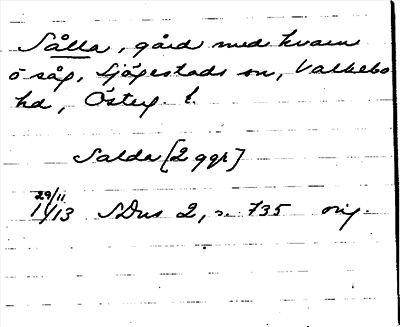 Sålla, gård med kvarn
o såg, Sjögestads sn, Valkebo
hd, Östg. l.
Salda [2 ggr]
29/11
1413 SDns 2, s. 735 orig.